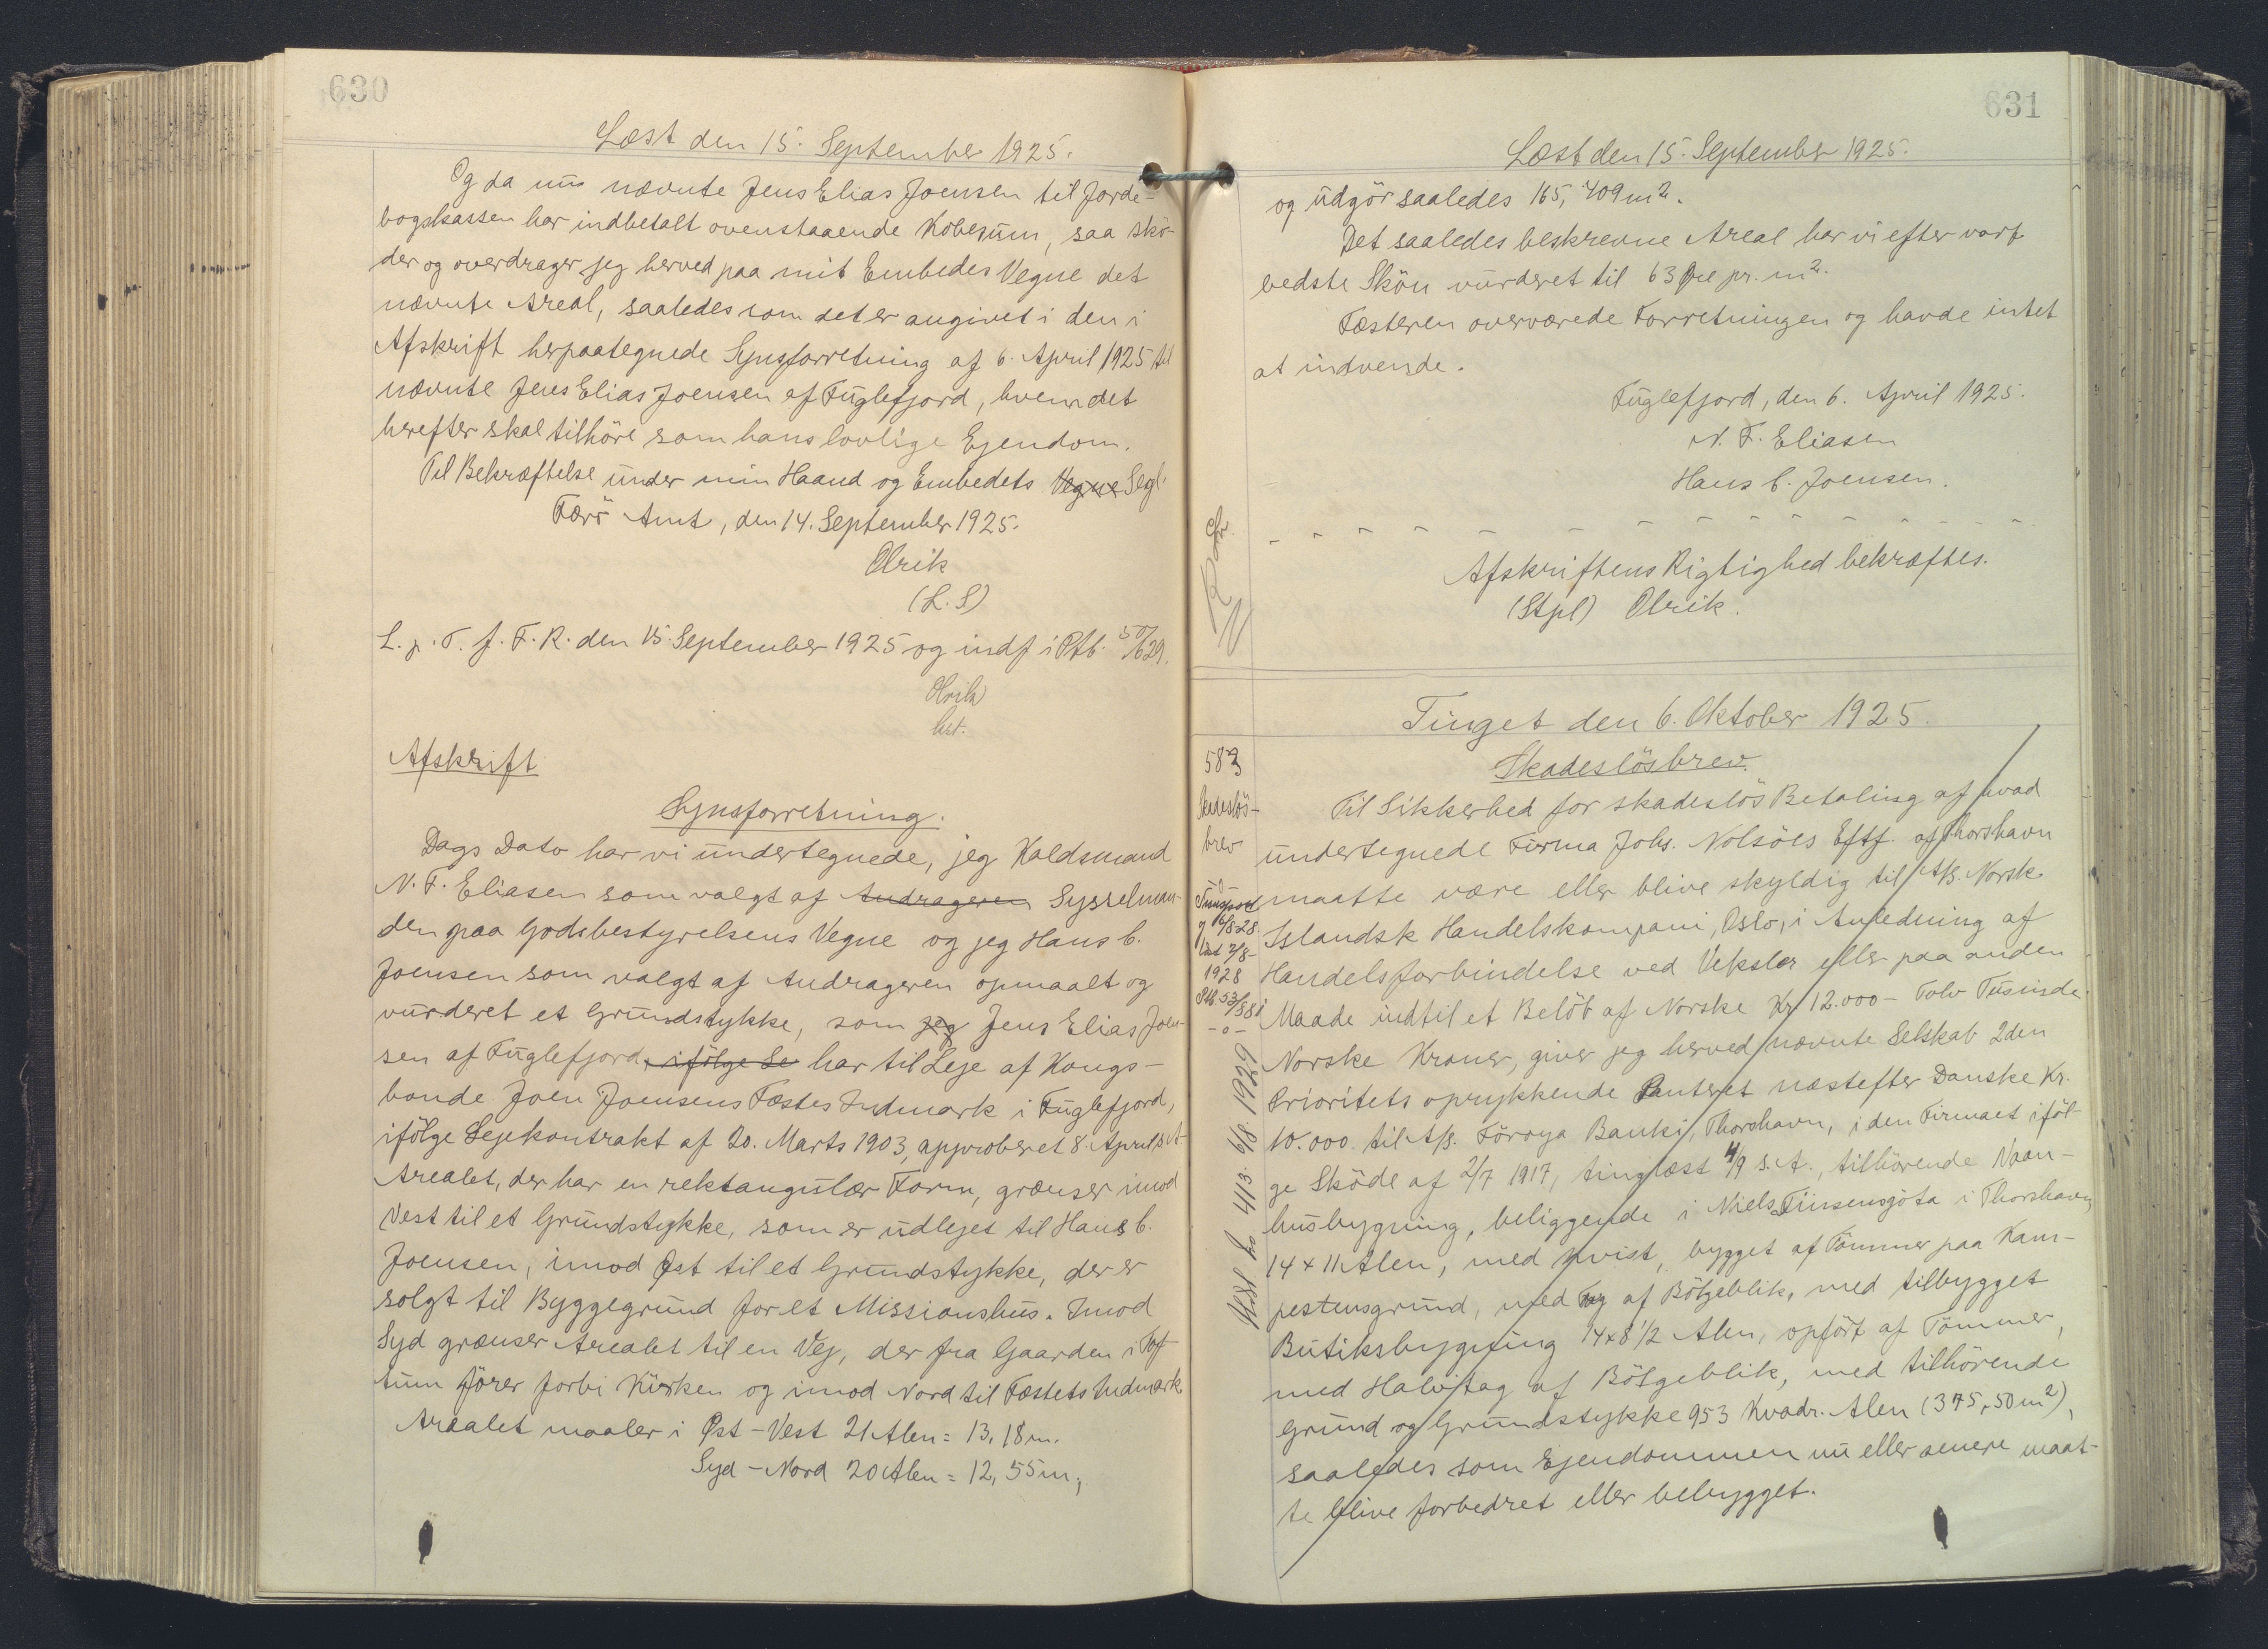 630
Læst den 15. September 1925.
Og da nu nævnte Jens Elias Joensen til Jorde-
bogskassen har indbetalt ovenstaaende Købesum, saa skö-
der og overdrager jeg herved paa mit Embedes Vegne det
nævnte Areal, saaledes som det er angivet i den i
Afskrift herpaategnede Synsforretning af 6. April 1925 til
nævnte Jens Elias Joensen af Fuglefjord, hvem det
herefter skal tilhöre som hans lovlige Ejendom.
Til Bekræftelse under min Haand og Embedets Vegne Segl.
Færö Amt, den 14. September 1925.
Olrik
(L. S)
L. p. T. f. F. R. den 15. September 1925 og indf i Ptb. 50/629.
Olrik
kst.
Afskrift
Synsforretning.
Dags Dato har vi undertegnede, jeg Haldsmand
N. F. Eliasen som valgt af Andrageren Sysselman-
den paa Godsbestyrelsens Vegne og jeg Hans C.
Joensen som valgt af Andrageren opmaalt og
vurderet et Grundstykke, som jeg Jens Elias Joen-
sen af Fuglefjord, ifölge Le har til Leje af Kongs-
bonde Joen Joensens Fæstes Indmark i Fuglefjord,
ifölge Lejekontrakt af 20. Marts 1903, approberet 8. April s. A.
Arealet, der har en rektangulær Form, grænser imod
Vest til et Grundstykke, som er udlejet til Hans C.
Joensen, imod Øst til et Grundstykke, der er
solgt til Byggegrund for et Missionshus. Imod
Syd grænser Arealet til en Vej, der fra Gaarden i Tof-
tum förer forbi Kirken og imod Nord til Fæstets Indmark.
Arealet maaler i Øst-Vest 21 Alen = 13,18 m.
Syd-Nord 20 Alen = 12,55 m,
631
Læst den 15. September 1925.
og udgör saaledes 165,409 m2.
Det saaledes beskrevne Areal har vi efter vort
bedste Skön vurderet til 63 Øre pr. m2.
Fæsteren overværede Forretningen og havde intet
at indvende.
Fuglefjord, den 6. April 1925.
N. F. Eliasen
Hans C. Joensen.
Afskriftens Rigtighed bekræftes.
(Stpl) Olrik.
Tinget den 6. Oktober 1925.
583
Skadeslös-
brev
-o-
Transport
6/8-28
læst 7/8-
1928
Ptb. 53/
-o-
413. 6/8. 1929
Skadeslösbrev.
Til Sikkerhed for skadeslös Betaling af hvad
undertegnede Firma Johs. Nolsöes Eftf. af Thorshavn
maatte være eller blive skyldig til A/S. Norsk
Islandsk Handelskompani, Oslo, i Anledning af
Handelsforbindelse ved Veksler eller paa anden
Maade indtil et Belöb af Norske Kr. 12.000 - Tolv Tusinde
Norske Kroner, giver jeg herved nævnte Selskab 2den
Prioritets oprykkende Panteret næstefter Danske Kr.
10.000 til A/S. Föroya Banki, Thorshavn, i den Firmaet iföl-
ge Sköde af 2/7 1917, tinglæst 4/9 s. A., tilhörende Vaan-
husbygning, beliggende i Niels Finsensgöta i Thorshavn,
14 x 11 Alen, med Kvist, bygget af Tömmer paa Kam-
pestensgrund, med Tag af Bölgeblik, med tilbygget
Butiksbygning 14 x 8 1/2 Alen, opfört af Tömmer,
med Halvtag af Bölgeblik, med tilhörende
Grund og Grundstykke 953 Kvadr. Alen (375,50 m2),
saaledes som Ejendommen nu eller senere maat-
te blive forbedret eller bebygget.